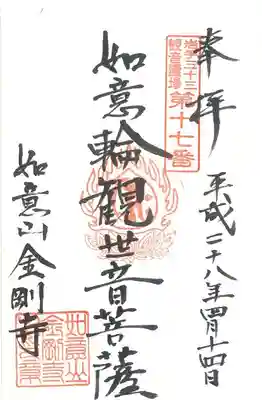 奉拝
岩手三十三
観音霊場
第十七番
平成二十八年四月十四日
如意輪観世音菩薩
如意山金剛寺
如意山
金剛寺